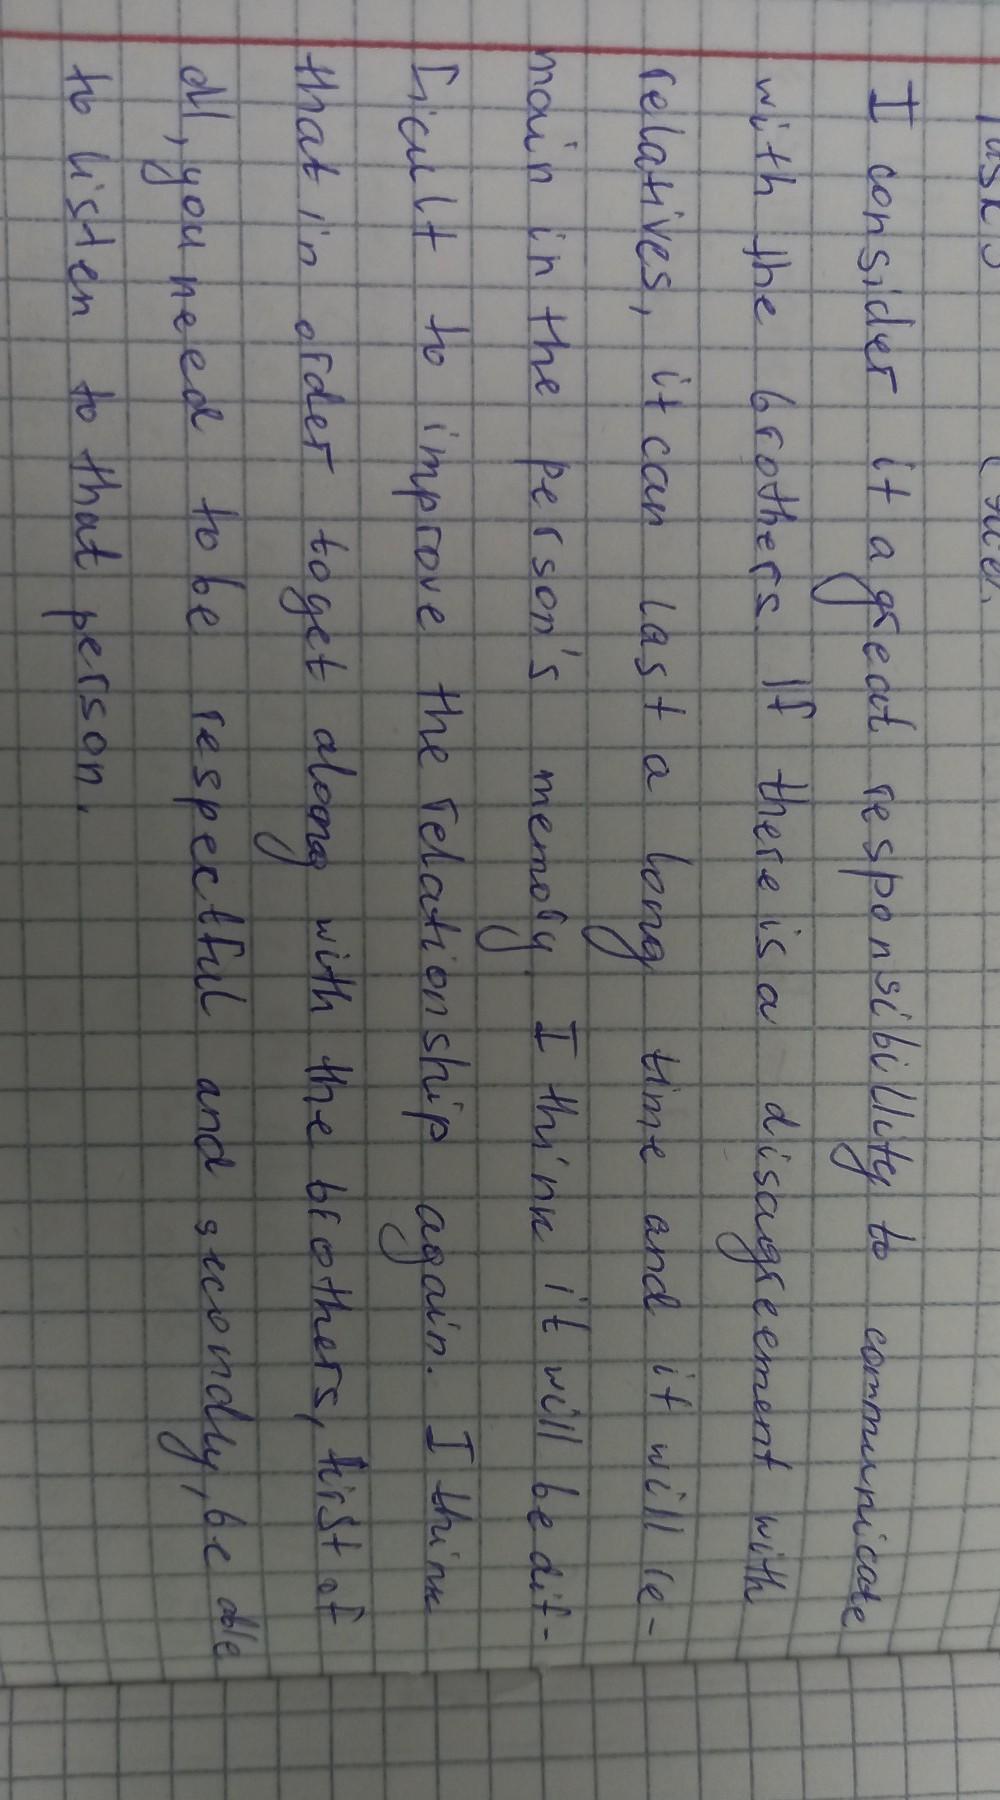 I consider it a great responsibillity to communicate
with the brothers. If there is a disagreement with
relatives, it can last a long time and it will re-
main in the person's memory. I think it will be dif-
ficult to improve the relationship again. I think
that in order to get along with the brothers, first of
all, you need to be respectful and secondly, be able
to listen to that person.